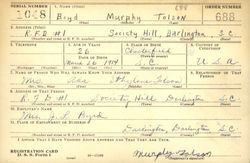 SERIAL NUMBER
1. NAME (Print)
ORDER NUMBER
1048 Boyd Murphy Tolson 688
(First) (Middle) (Last)
2. ADDRESS (Print)
R.F.D #1 Society Hill, Darlington, S.C.
3. TELEPHONE
4. AGE IN YEARS
5. PLACE OF BIRTH
6. COUNTRY OF CITIZENSHIP
26
Chesterfield
DATE OF BIRTH
S.C. U.S.A
7. NAME OF PERSON WHO WILL ALWAYS KNOW YOUR ADDRESS
8. RELATIONSHIP OF THAT PERSON
Mrs.
9. ADDRESS OF THAT PERSON
R.F.D. #1 Society Hill Darlington S.C.
10. EMPLOYER'S NAME
Mrs. J. F. Byrd
11. PLACE OF EMPLOYMENT OR BUSINESS
Darlington, Darlington S.C.
I AFFIRM THAT I HAVE VERIFIED ABOVE ANSWERS AND THAT THEY ARE TRUE.
REGISTRATION CARD
D.S.S. Form 1
Murphy Tolson